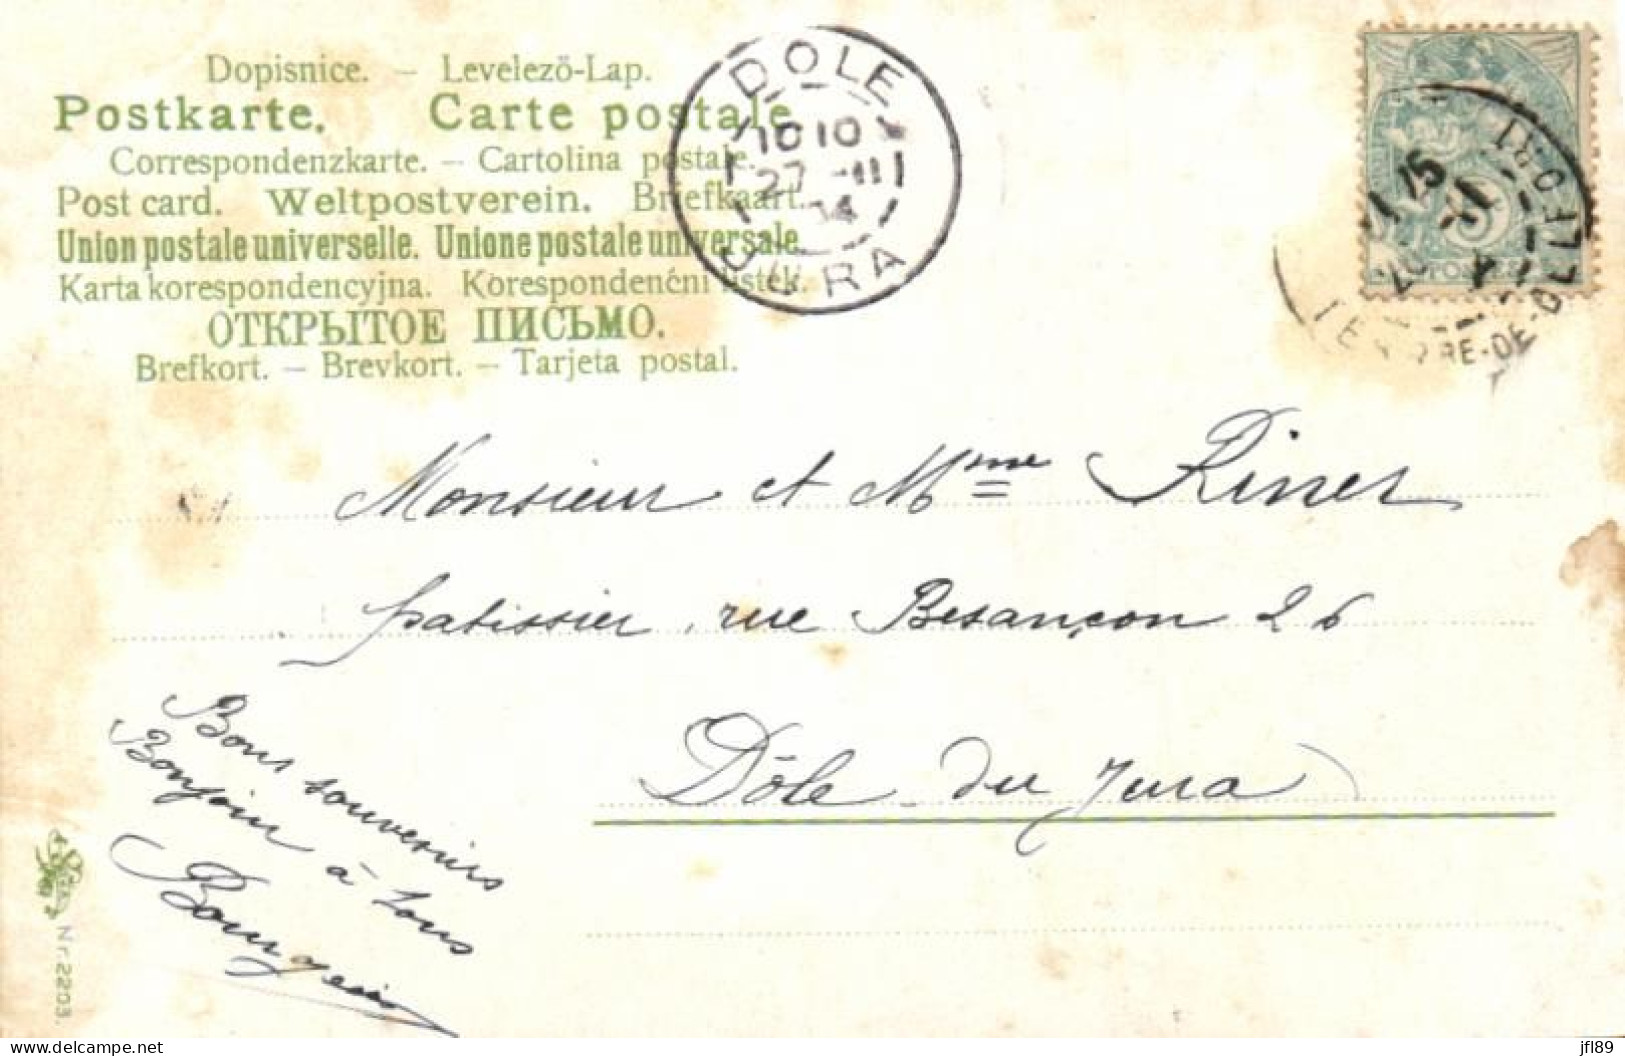 Dopisnice. – Levelező-Lap.
Postkarte. Carte postale.
Correspondenzkarte. – Cartolina postale.
Post card. Weltpostverein. Briefkaart.
Union postale universelle. Unione postale universale.
Karta korespondencyjna. Korespondenční lístek.
ОТКРЫТОЕ ПИСЬМО.
Brefkort. – Brevkort. – Tarjeta postal.
DOLE
10 10
27 -II
04
JURA
Monsieur et Mme Riner
patissier, rue Besançon 26
Dôle du Jura
Bons souvenirs
Bonjour à tous
Nr. 2203.
delcampe.net
jfl89